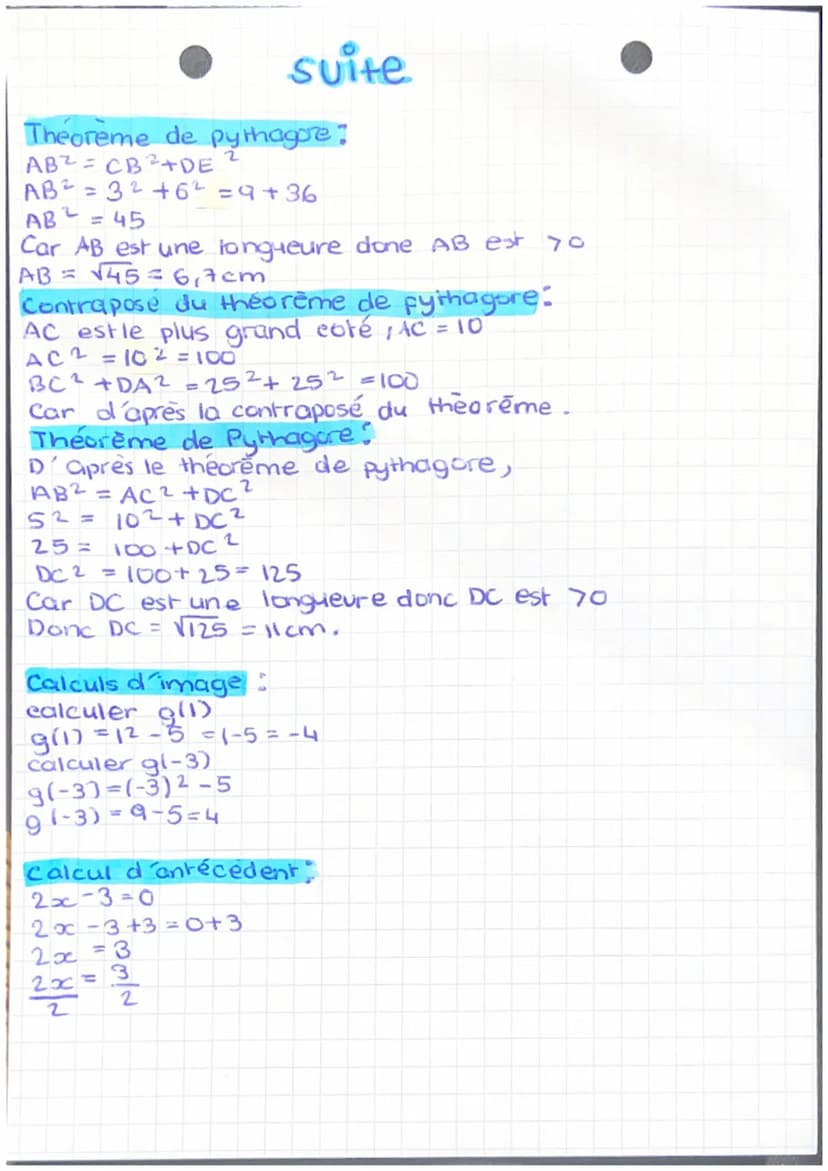 suite
Théorème de pythagore :
AB² = CB² + DE²
AB² = 3² + 6² = 9 + 36
AB² = 45
Car AB est une longueure donc AB est >0
AB = √45 = 6,7cm
Contraposé du théorème de pythagore :
AC est le plus grand coté, AC = 10
AC² = 10² = 100
BC² + DA² = 25² + 25² = 100
Car d'après la contraposé du thèorème.
Théorème de Pythagore :
D'après le théorème de pythagore,
AB² = AC² + DC²
5² = 10² + DC²
25 = 100 + DC²
DC² = 100 + 25 = 125
Car DC est une longueure donc DC est >0
Donc DC = √125 = 11cm.
Calculs d'image :
calculer g(1)
g(1) = 1² - 5 = 1-5 = -4
calculer g(-3)
g(-3) = (-3)² - 5
g(-3) = 9-5=4
Calcul d'antécédent :
2x - 3 = 0
2x - 3 + 3 = 0 + 3
2x = 3
2x/2 = 3/2